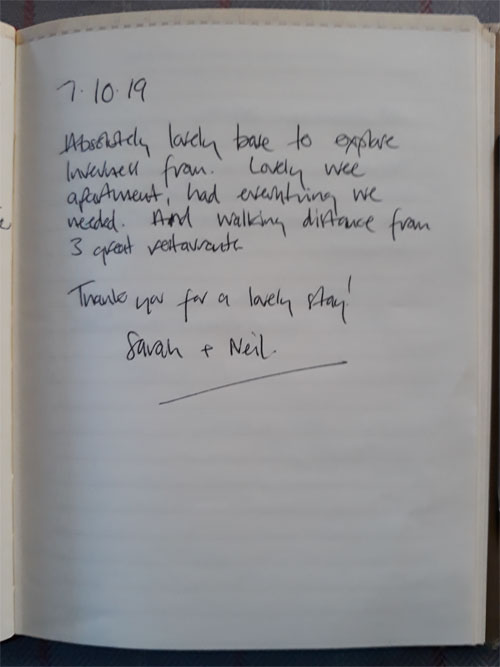 7.10.19
Absolutely lovely base to explore
Inverness from. Lovely wee
apartment, had everything we
needed. And walking distance from
3 great restaurants
Thank you for a lovely stay!
Sarah + Neil.